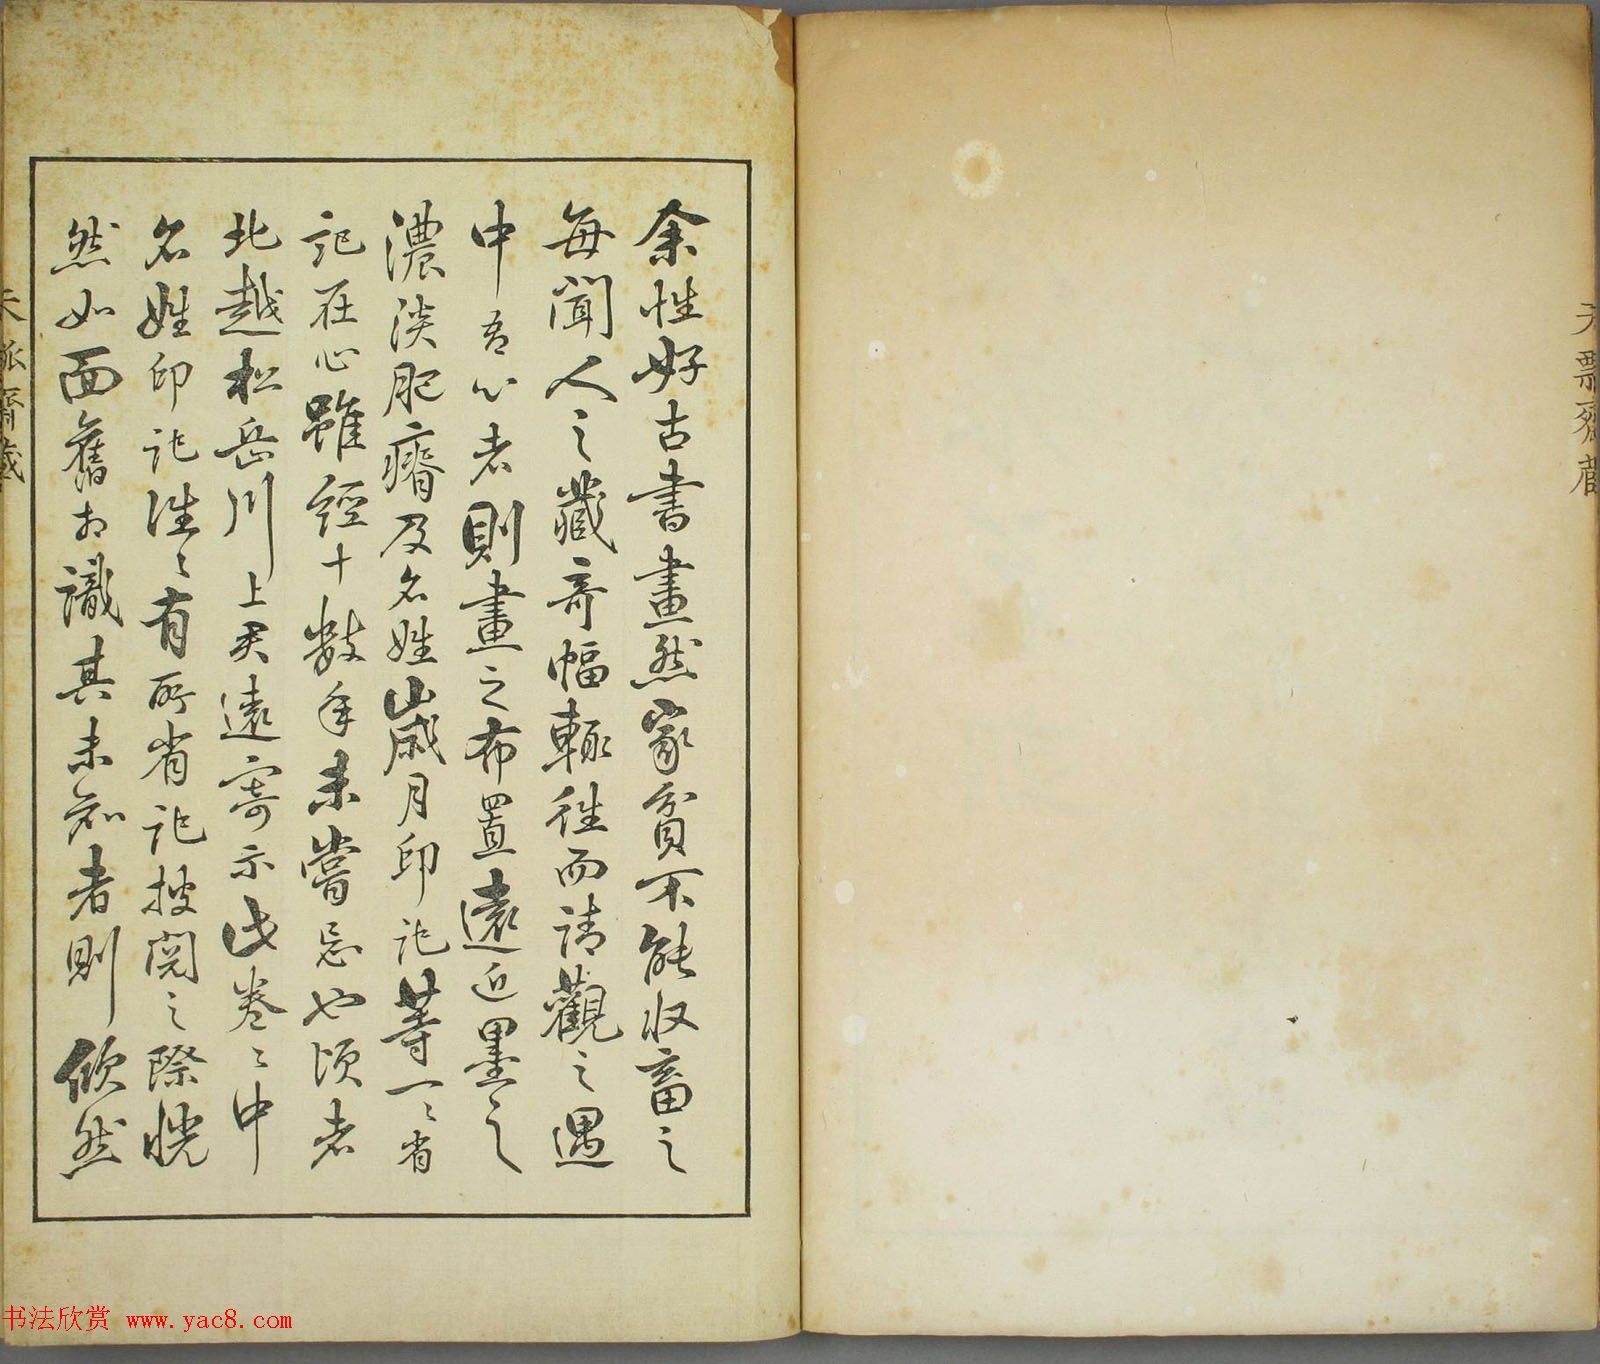 余性好古書畫然家貧不能収畜之
每聞人之藏奇幅輒往而請觀之遇
中吾心者則畫之布置遠近墨之
濃淡肥瘠及名姓歲月印記等一〻省
記在心雖經十數年未嘗忘也頃者
北越松岳川上君遠寄示此卷〻中
名姓印記往〻有所省記披閱之際恍
然如面舊相識其未知者則欣然
齋藏
齋蔵
书法欣赏 www.yac8.com